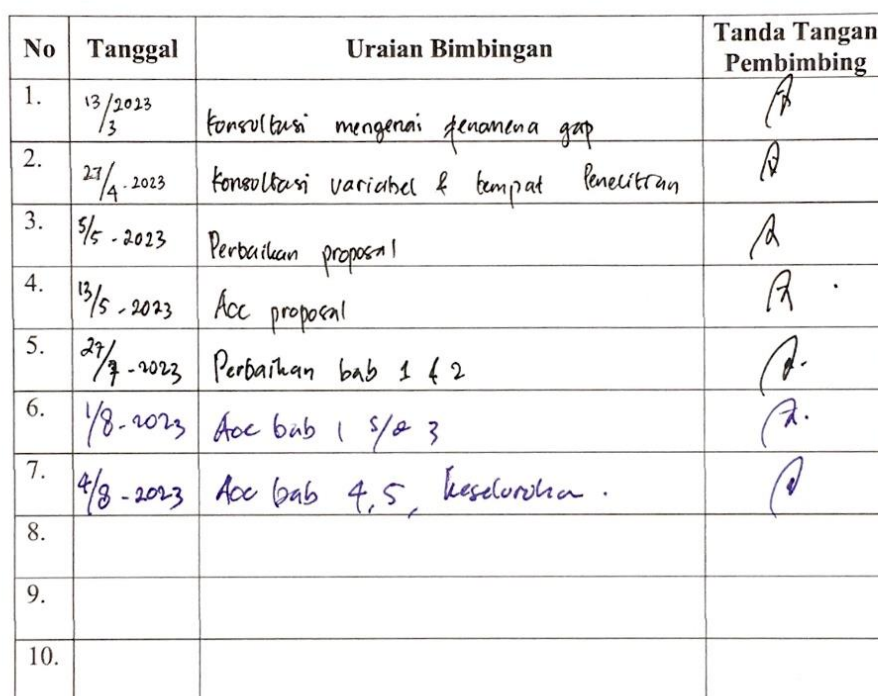 No Tanggal Uraian Bimbingan Tanda Tangan Pembimbing
1. 13/3 2023 Konsultasi mengenai fenomena gap
2. 27/4 - 2023 Konsultasi variabel & tempat Penelitian
3. 5/5 - 2023 Perbaikan proposal
4. 13/5 - 2023 Acc proposal
5. 27/7 - 2023 Perbaikan bab 1 & 2
6. 1/8 - 2023 Acc bab 1 s/d 3
7. 4/8 - 2023 Acc bab 4,5, keseluruhan.
8.
9.
10.